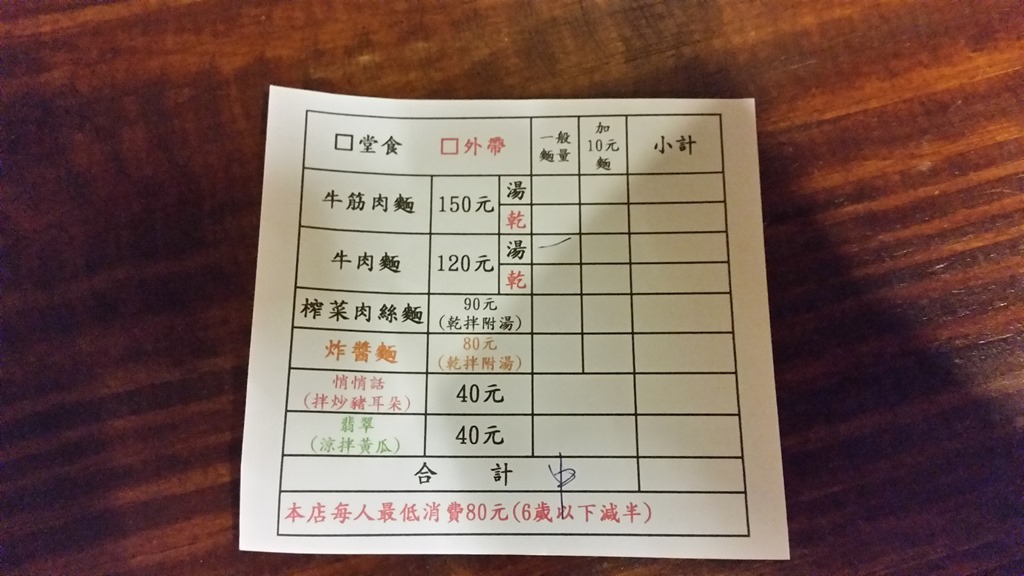 □堂食 □外帶 一般麵量 加10元麵 小計
牛筋肉麵 150元 湯
乾
牛肉麵 120元 湯 一
乾
榨菜肉絲麵 90元
(乾拌附湯)
炸醬麵 80元
(乾拌附湯)
悄悄話
(拌炒豬耳朵) 40元
翡翠
(涼拌黃瓜) 40元
合 計
本店每人最低消費80元(6歲以下減半)